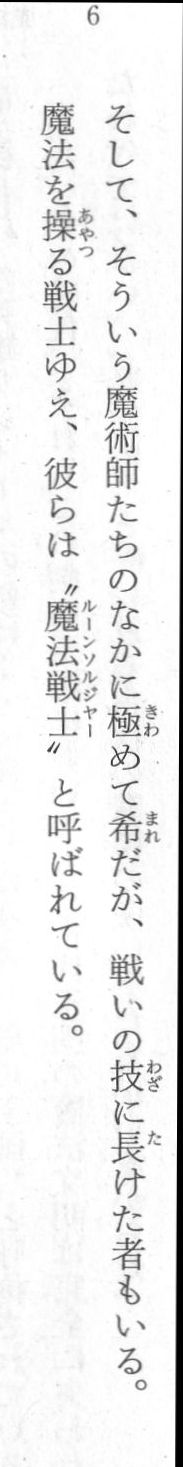 6
そして、そういう魔術師たちのなかに極めて希だが、戦いの技に長けた者もいる。
魔法を操る戦士ゆえ、彼らは〝魔法戦士〟と呼ばれている。
きわ
まれ
わざ
た
あやつ
ルーンソルジャー